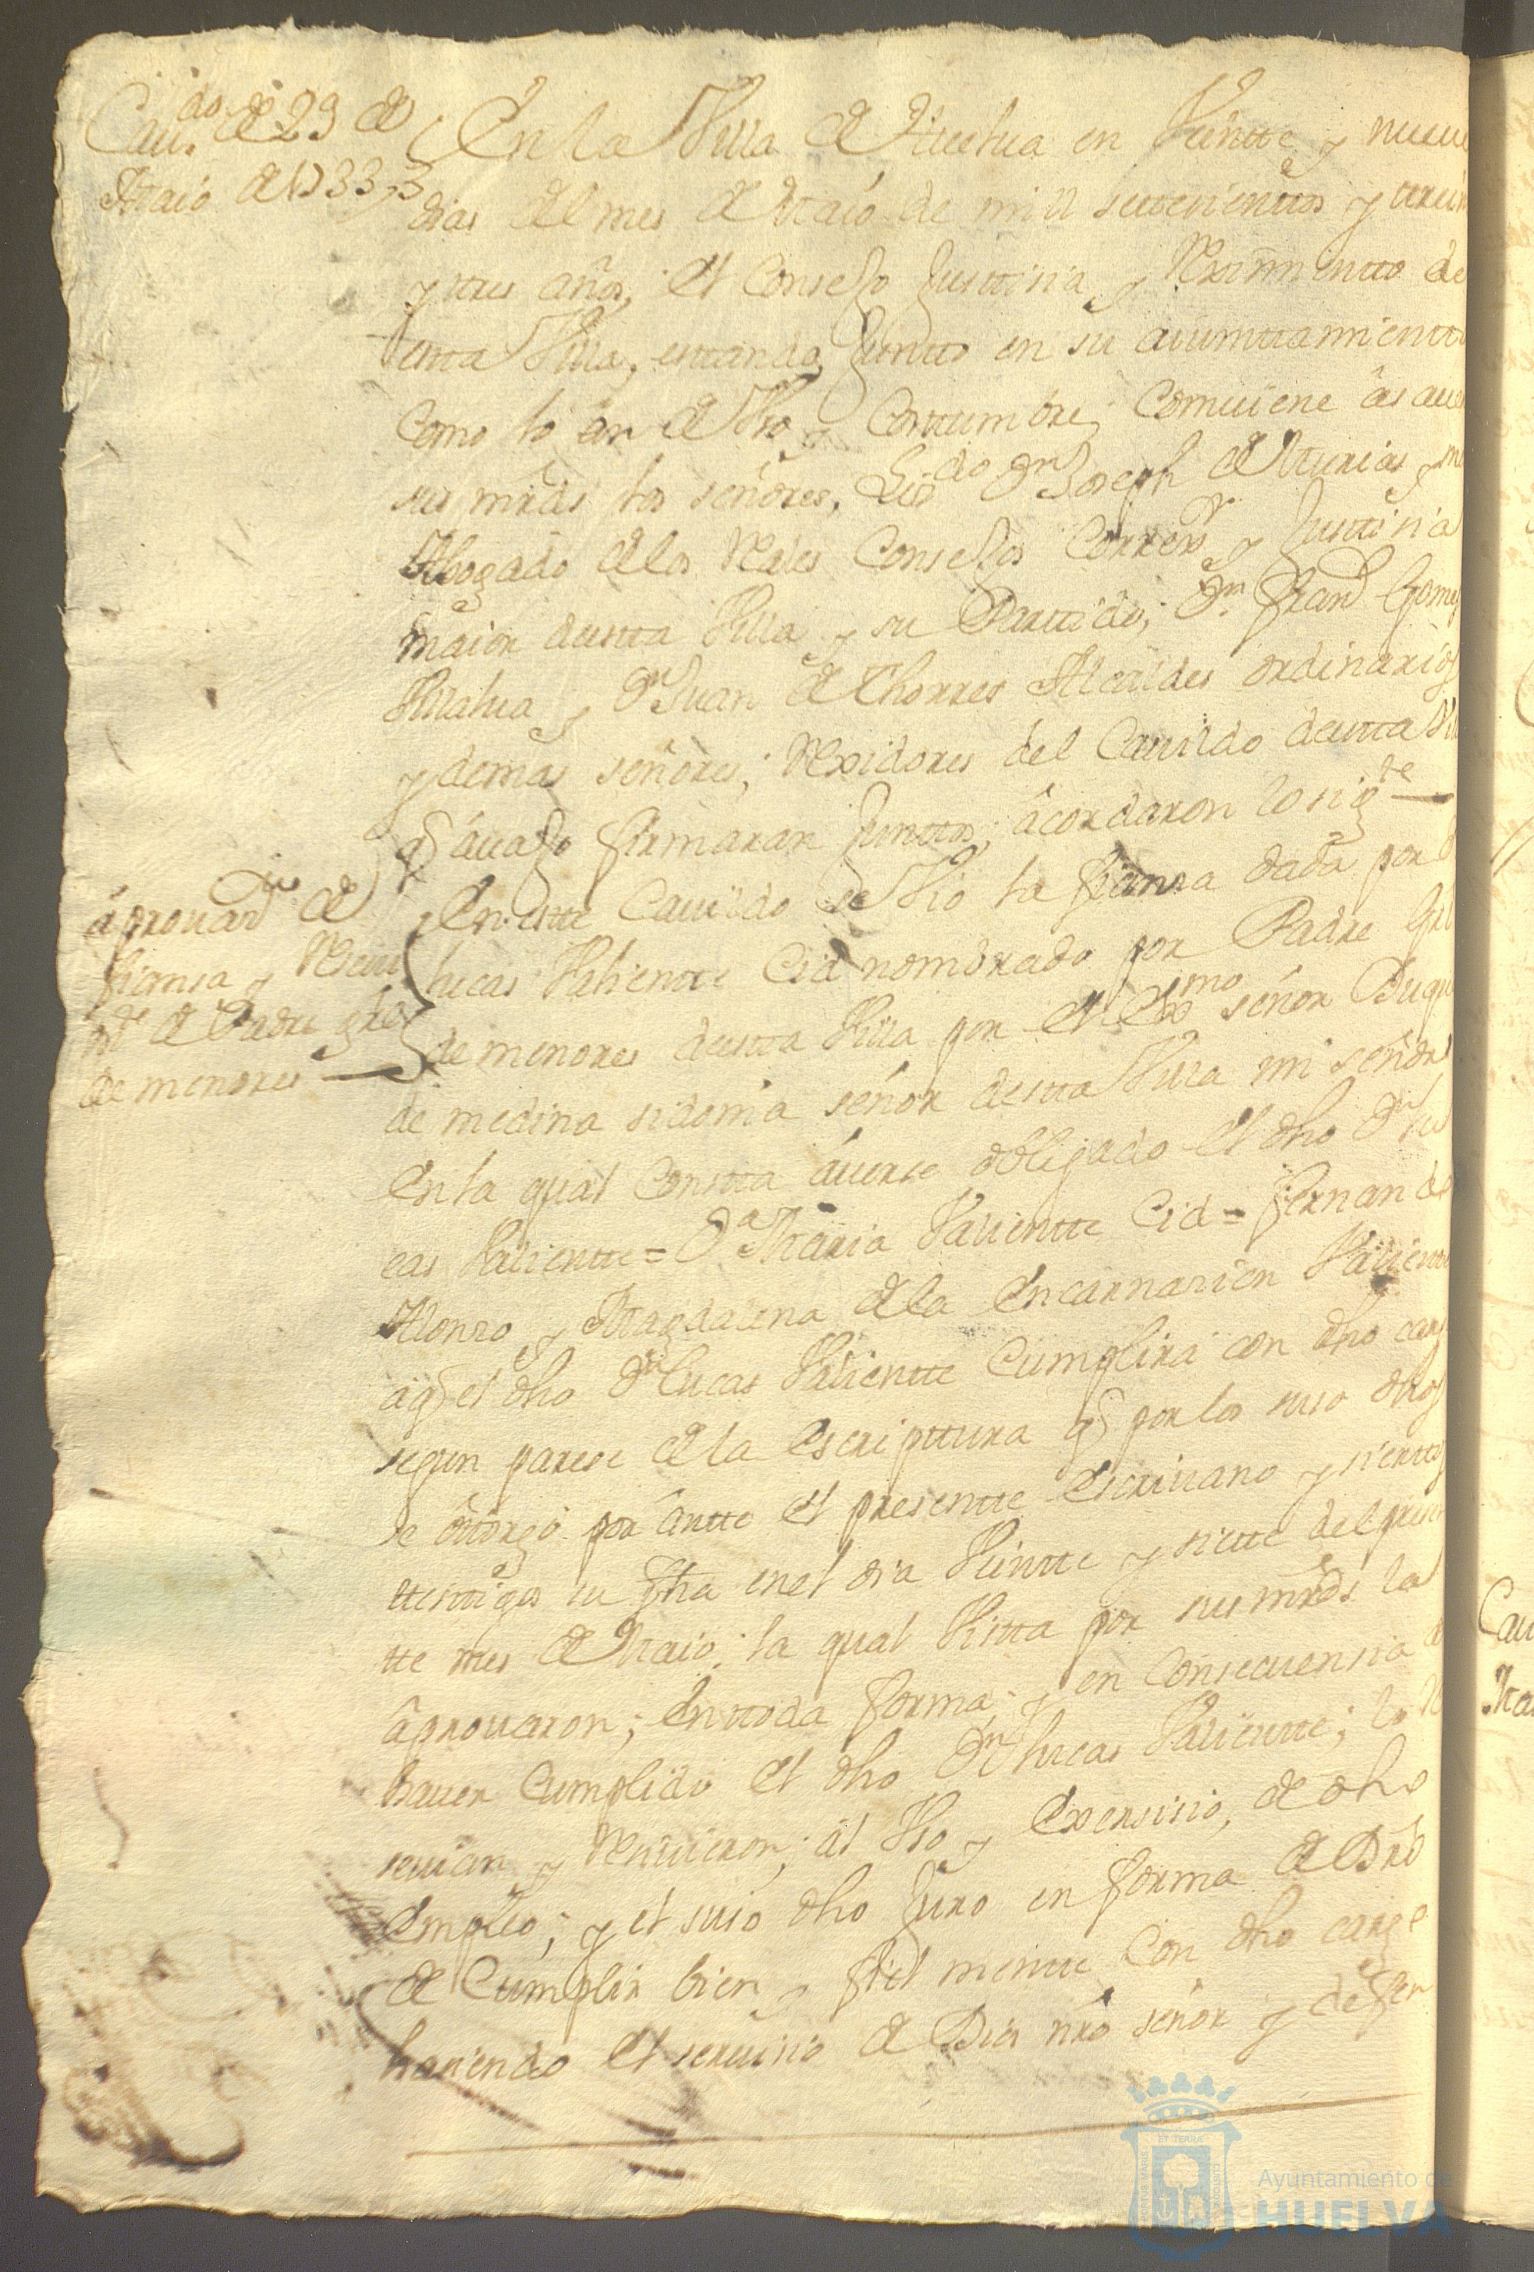 Cau.do de 29 de
Maio de 1733
En la Villa de Huelua en Veintte y nueue
dias del mes de Maio de mill settecienttos y trein
y tres años; el Consejo Justticia y Reximientto de
estta Villa, esttando Juntto en su aiunttamientto
Como lo an de Vso y Costtumbre, Comuiene asauer
sus mrds los señores, Liz.do Dn Joseph de Asturias y
Abogado de los Rales Consejos Correxr y Justticia
maior destta Villa y su Parttido; Dn Franco Gomez
Villalua y Dn Juan de Thorres Alcaldes ordinarios
y demas señores; Rexidores del Cauildo destta Villa
q auajo firmaran Junttos; acordaron lo sigte
áprouazn de
fianza y Reciui
mto de Padre gral
de menores
En estte Cauildo se Vio la fianza dada por Dn
Lucas Valientte Cid nombrado por Padre Gral
de menores destta Villa por el Exmo señor Duque
de medina sidonia señor destta Villa mi señor
En la qual Constta áuerse obligado el dho Dn Lu
cas Valientte = Da Maria Valientte Cid = fernando
Alonso y Magdalena de la Encarnazion Valientte
a q el dho Dn Lucas Valientte Cumplira con dho cargo
segun parese de la Escripttura q por los suso dhos
se ottorgó por ántte el presentte Escriuano y siertos
testtigos su fha en el dia Veintte y siette del presen
tte mes de Maio; la qual Vistta por sus mrds la
áprouaron; En ttoda forma; y en Consecuensia de
hauer Cumplido el dho Dn Lucas Valientte; lo Re
seuian y Resiuieron; al Vso y Exersisio, de dho
Empleo; y el suso dho Juro en forma de Dro
de Cumplir bien y fiel mentte Con dho cargo
hasiendo el seruisio de Dios nro señor y defen
Ayuntamiento de
HUELVA